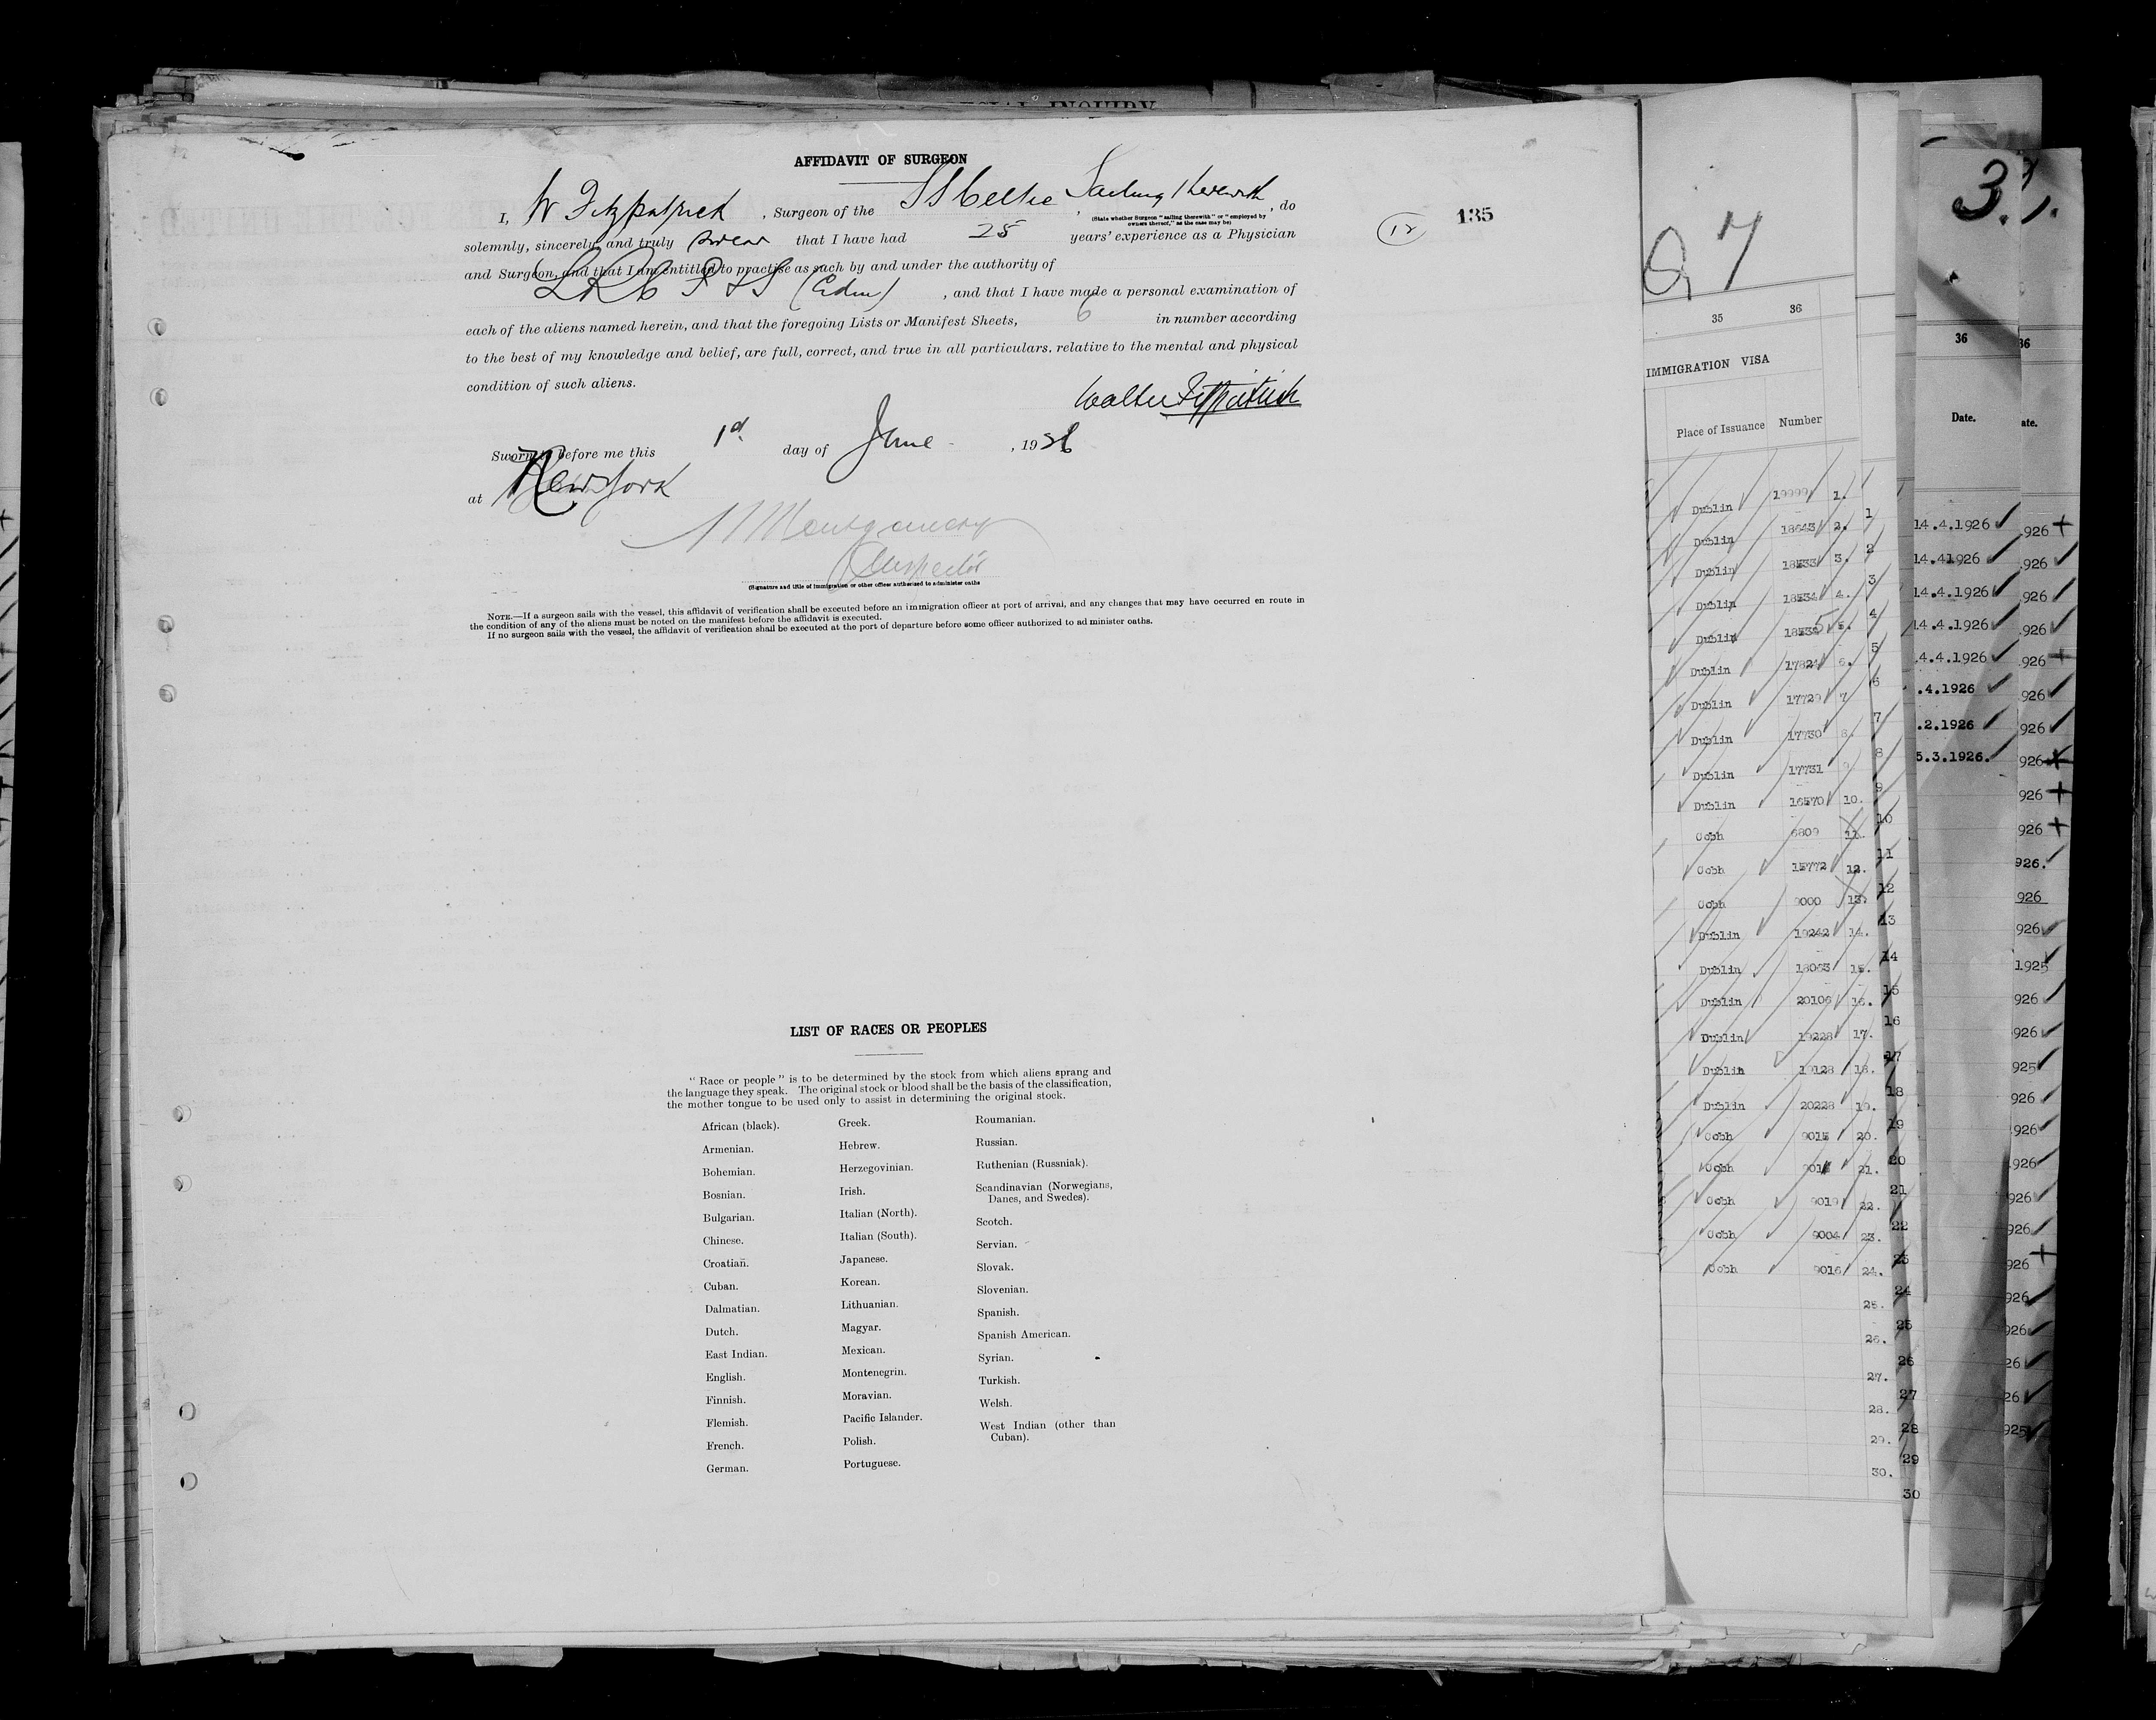 SPECIAL INQUIRY
AFFIDAVIT OF SURGEON
I, W Fitzpatrick , Surgeon of the SS Celtic , Sailing therewith , do
(State whether Surgeon "sailing therewith" or "employed by
owners thereof," as the case may be)
135
12
solemnly, sincerely and truly swear that I have had 25 years' experience as a Physician
and Surgeon, and that I am entitled to practise as such by and under the authority of
LRC P & S (Edin) , and that I have made a personal examination of
each of the aliens named herein, and that the foregoing Lists or Manifest Sheets, 6 in number according
to the best of my knowledge and belief, are full, correct, and true in all particulars. relative to the mental and physical
condition of such aliens.
Walter Fitzpatrick
Sworn to before me this 1st day of June , 1926
at New York
Montgomery
Inspector
(Signature and title of immigration or other officer authorized to administer oaths
NOTE.—If a surgeon sails with the vessel, this affidavit of verification shall be executed before an immigration officer at port of arrival, and any changes that may have occurred en route in
the condition of any of the aliens must be noted on the manifest before the affidavit is executed.
If no surgeon sails with the vessel, the affidavit of verification shall be executed at the port of departure before some officer authorized to administer oaths.
LIST OF RACES OR PEOPLES
"Race or people" is to be determined by the stock from which aliens sprang and
the language they speak. The original stock or blood shall be the basis of the classification,
the mother tongue to be used only to assist in determining the original stock.
African (black).
Armenian.
Bohemian.
Bosnian.
Bulgarian.
Chinese.
Croatian.
Cuban.
Dalmatian.
Dutch.
East Indian.
English.
Finnish.
Flemish.
French.
German.
Greek.
Hebrew.
Herzegovinian.
Irish.
Italian (North).
Italian (South).
Japanese.
Korean.
Lithuanian.
Magyar.
Mexican.
Montenegrin.
Moravian.
Pacific Islander.
Polish.
Portuguese.
Roumanian.
Russian.
Ruthenian (Russniak).
Scandinavian (Norwegians,
Danes, and Swedes).
Scotch.
Servian.
Slovak.
Slovenian.
Spanish.
Spanish American.
Syrian.
Turkish.
Welsh.
West Indian (other than
Cuban).
35 36
IMMIGRATION VISA
Place of Issuance Number
Dublin 1.
Dublin 18643 2.
Dublin 18533 3.
Dublin 18534 4.
Dublin 5.
Dublin 17824 6.
Dublin 17729 7
Dublin 17730 8.
Dublin 17731 9
Dublin 16570 10.
Cobh 8809 11.
Cobh 15772 12.
Cobh 9000 13.
Dublin 19242 14.
Dublin 18063 15.
Dublin 20106 16.
Dublin 19228 17.
Dublin 19128 18.
Dublin 20228 19.
Cobh 9015 20.
Cobh 21.
Cobh 9019 22.
Cobh 9004 23.
Cobh 9016 24.
25.
26.
27.
28.
29.
30.
1
2
3
4
5
6
7
8
9
10
11
12
13
14
15
16
17
18
19
20
21
22
23
24
25
26
27
28
29
30
36
Date.
14.4.1926
14.41926
14.4.1926
14.4.1926
.4.4.1926
.4.1926
.2.1926
5.3.1926.
36
ate.
926
926
926
926
926
926
926
926
926
926
926.
926
926
1925
926
926
925
926
926
926
926
926
926
926
926
26
26
925